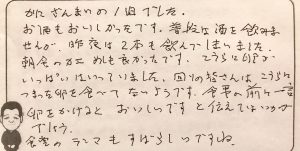 かにざんまいの1日でした。
お酒もおいしかったです。普段は酒を飲みま
せんが、昨夜は2本も飲んでしまいました。
朝食のかにめしも良かったです。こうらに卵が
いっぱいはいっていました。回りの皆さんは、こうらに
つまった卵を食べてないようです。食事の前に一言
卵をかけると おいしいですと伝えてはいかが
でしょう。
食事の も すばらしいですね。